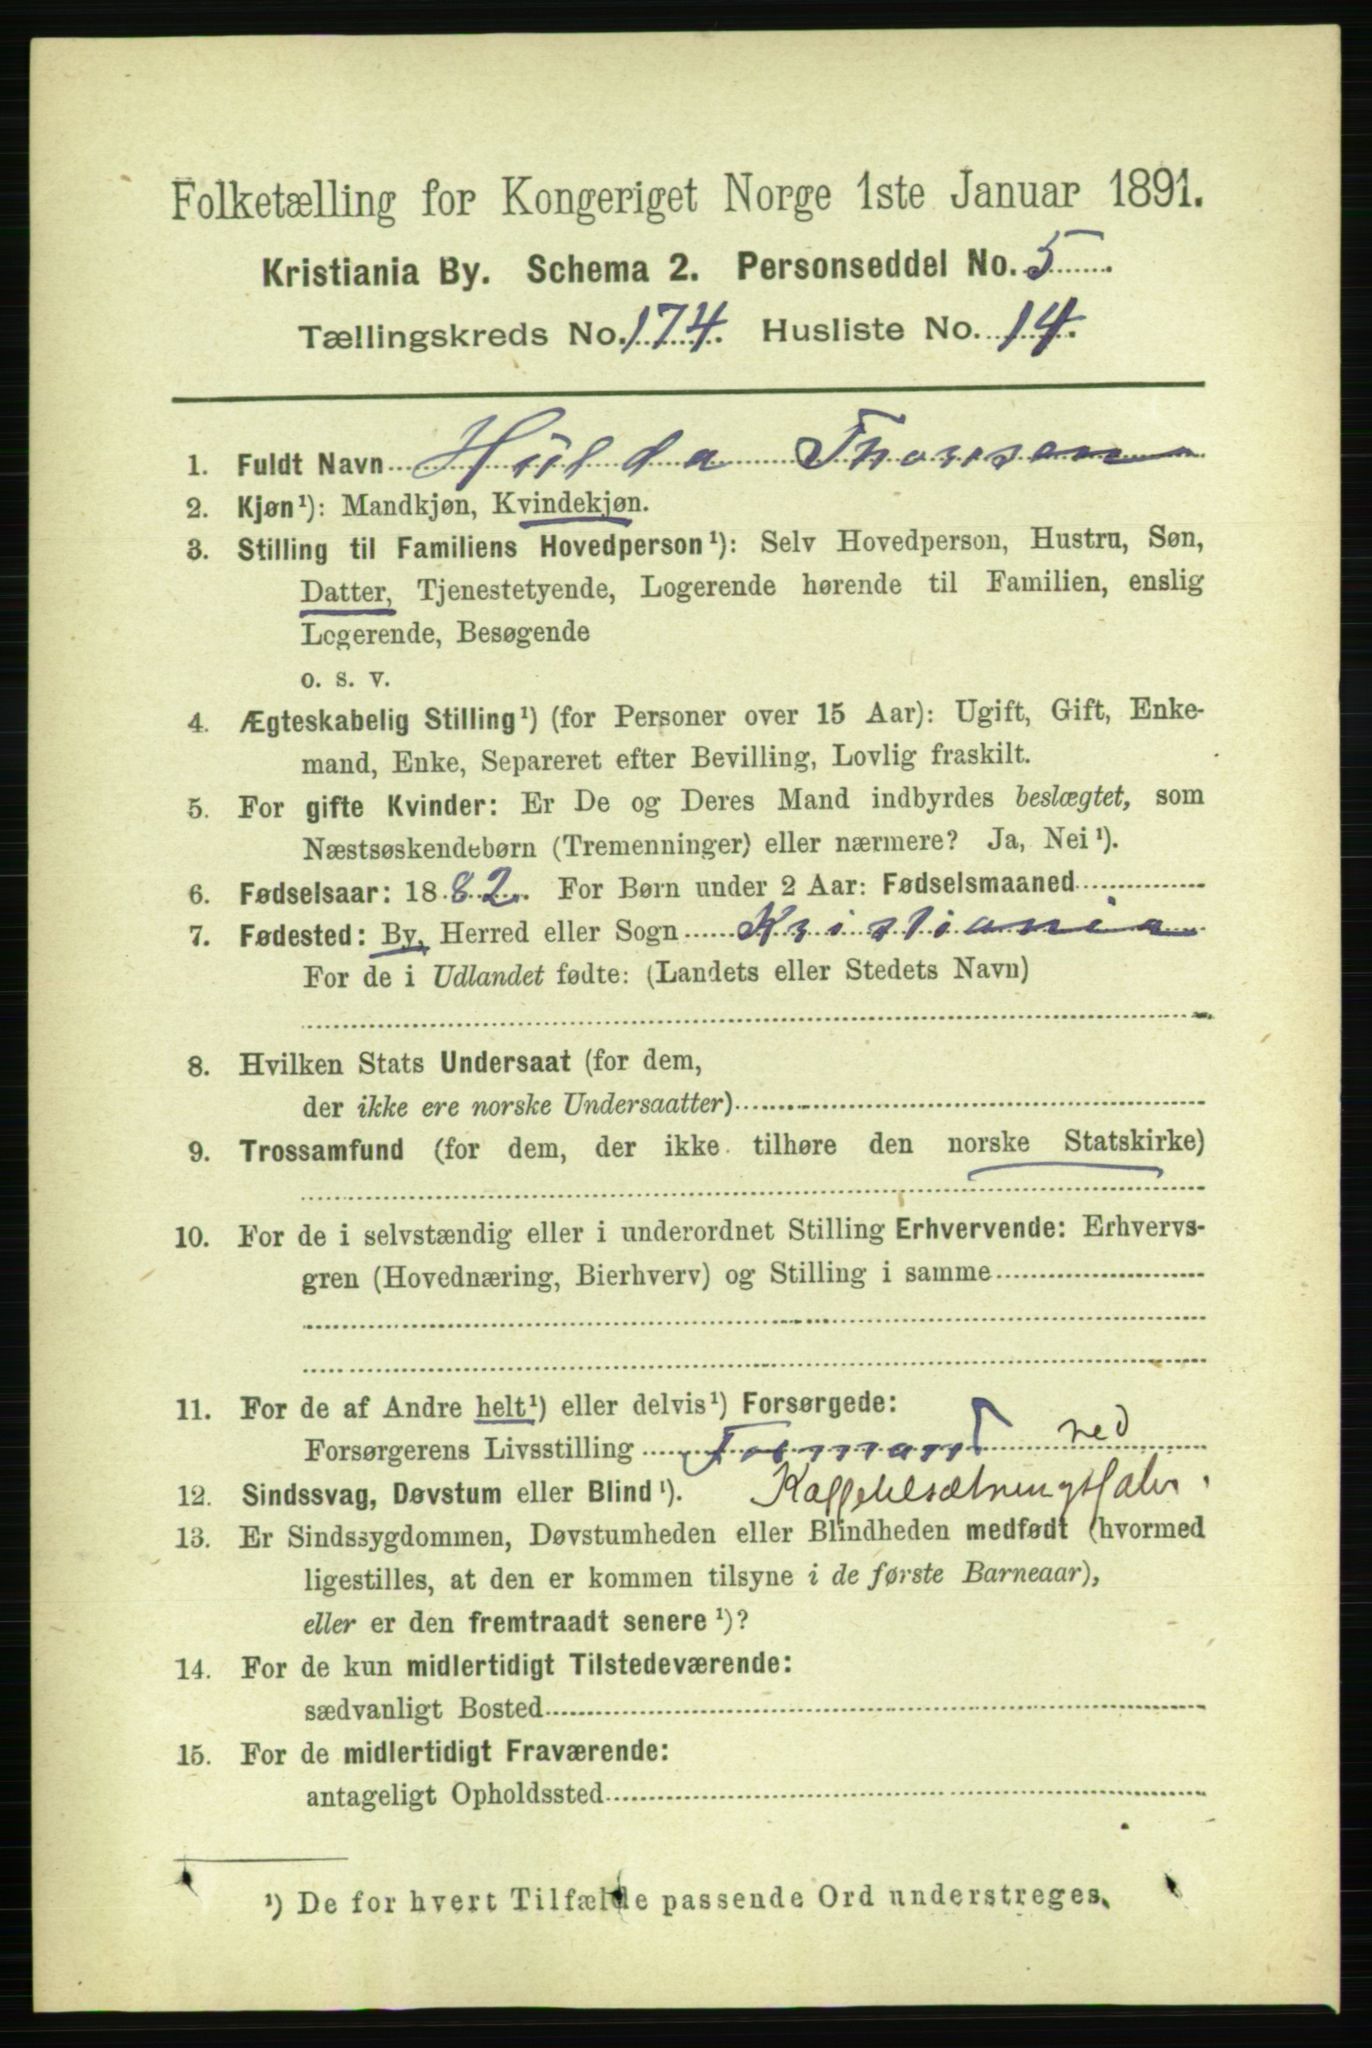 Folketælling for Kongeriget Norge 1ste Januar 1891.
Kristiania By. Schema 2. Personseddel No. 5
Tællingskreds No. 174. Husliste No. 14.
1. Fuldt Navn Hulda Thoresen
2. Kjøn¹): Mandkjøn, Kvindekjøn.
3. Stilling til Familiens Hovedperson¹): Selv Hovedperson, Hustru, Søn,
Datter, Tjenestetyende, Logerende hørende til Familien, enslig
Logerende, Besøgende
o. s. v.
4. Ægteskabelig Stilling¹) (for Personer over 15 Aar): Ugift, Gift, Enke-
mand, Enke, Separeret efter Bevilling, Lovlig fraskilt.
5. For gifte Kvinder: Er De og Deres Mand indbyrdes beslægtet, som
Næstsøskendebørn (Tremenninger) eller nærmere? Ja, Nei¹).
6. Fødselsaar: 1882. For Børn under 2 Aar: Fødselsmaaned
7. Fødested: By, Herred eller Sogn Kristiania
For de i Udlandet fødte: (Landets eller Stedets Navn)
8. Hvilken Stats Undersaat (for dem,
der ikke ere norske Undersaatter)
9. Trossamfund (for dem, der ikke tilhøre den norske Statskirke)
10. For de i selvstændig eller i underordnet Stilling Erhvervende: Erhvervs-
gren (Hovednæring, Bierhverv) og Stilling i samme
11. For de af Andre helt¹) eller delvis¹) Forsørgede:
Forsørgerens Livsstilling Formand ved
12. Sindssvag, Døvstum eller Blind¹).
13. Er Sindssygdommen, Døvstumheden eller Blindheden medfødt (hvormed
ligestilles, at den er kommen tilsyne i de første Barneaar),
eller er den fremtraadt senere¹)?
14. For de kun midlertidigt Tilstedeværende:
sædvanligt Bosted
15. For de midlertidigt Fraværende:
antageligt Opholdssted
¹) De for hvert Tilfælde passende Ord understreges.